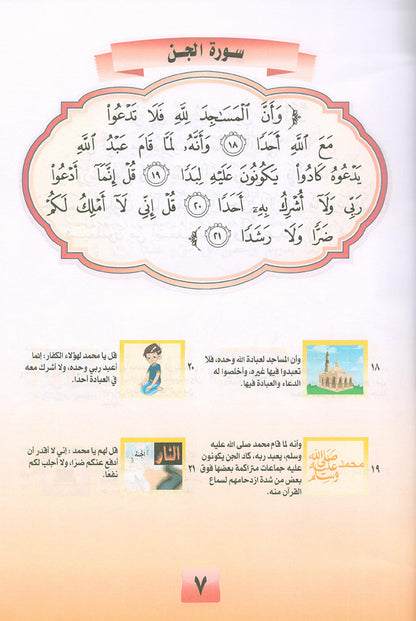 سورة الجن
﴿ وَأَنَّ الْمَسَاجِدَ لِلَّهِ فَلَا تَدْعُوا
مَعَ اللَّهِ أَحَدًا ١٨ وَأَنَّهُ لَمَّا قَامَ عَبْدُ اللَّهِ
يَدْعُوهُ كَادُوا يَكُونُونَ عَلَيْهِ لِبَدًا ١٩ قُلْ إِنَّمَا أَدْعُوا
رَبِّي وَلَا أُشْرِكُ بِهِ أَحَدًا ٢٠ قُلْ إِنِّي لَا أَمْلِكُ لَكُمْ
ضَرًّا وَلَا رَشَدًا ٢١ ﴾
١٨
وأن المساجد لعبادة الله وحده، فلا
تعبدوا فيها غيره، وأخلصوا له
الدعاء والعبادة فيها.
١٩
محمد صلى الله عليه وسلم
وأنه لما قام محمد صلى الله عليه
وسلم، يعبد ربه، كاد الجن يكونون
عليه جماعات متراكمة بعضها فوق
بعض من شدة ازدحامهم لسماع
القرآن منه.
٢٠
قل يا محمد لهؤلاء الكفار: إنما
أعبد ربي وحده، ولا أشرك معه
في العبادة أحدا.
٢١
النار
الجنة
قل لهم يا محمد: إني لا أقدر أن
أدفع عنكم ضرا، ولا أجلب لكم
نفعا.
٧